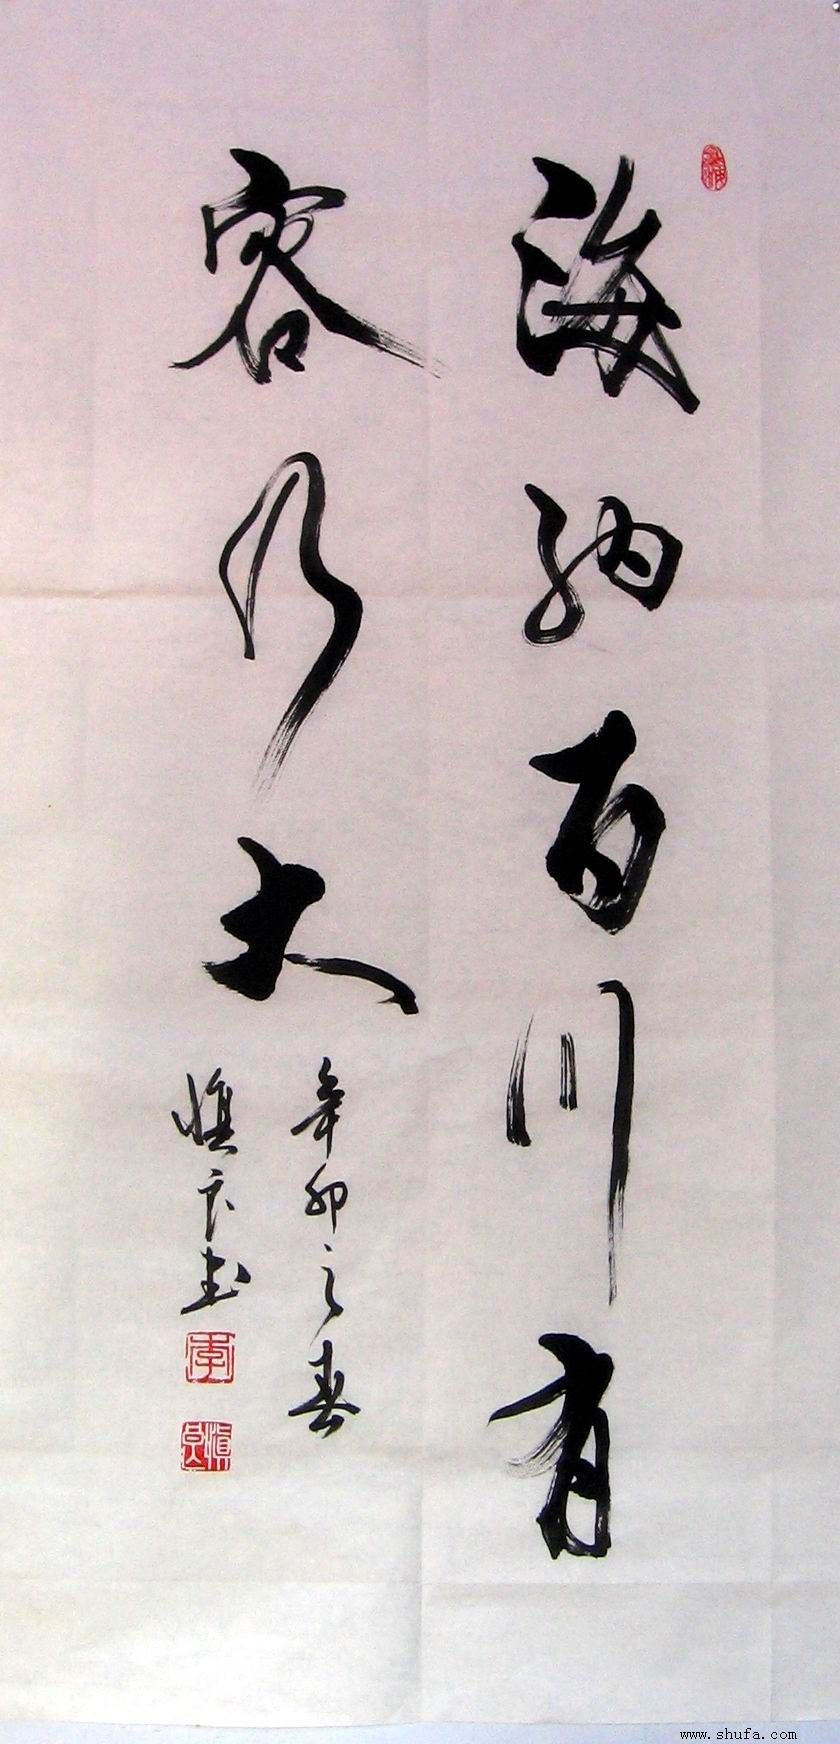 海纳百川有
容乃大
辛卯之春
慎良书
李
慎良
www.shufa.com